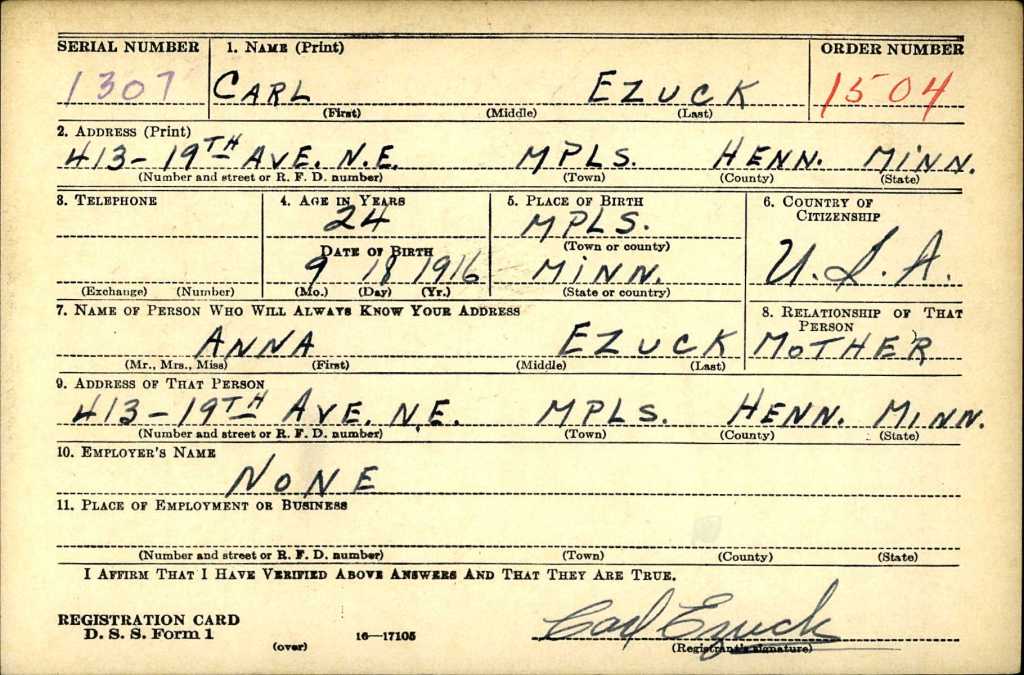 SERIAL NUMBER 1. NAME (Print) ORDER NUMBER
1307 CARL EZUCK 1504
(First) (Middle) (Last)
2. ADDRESS (Print)
413-19TH AVE. N.E. MPLS. HENN. MINN.
(Number and street or R. F. D. number) (Town) (County) (State)
3. TELEPHONE 4. AGE IN YEARS 5. PLACE OF BIRTH 6. COUNTRY OF CITIZENSHIP
24 MPLS.
(Town or county)
DATE OF BIRTH U.S.A.
9 18 1916 MINN.
(Exchange) (Number) (Mo.) (Day) (Yr.) (State or country)
7. NAME OF PERSON WHO WILL ALWAYS KNOW YOUR ADDRESS 8. RELATIONSHIP OF THAT PERSON
ANNA EZUCK MOTHER
(Mr., Mrs., Miss) (First) (Middle) (Last)
9. ADDRESS OF THAT PERSON
413-19TH AVE. N.E. MPLS. HENN. MINN.
(Number and street or R. F. D. number) (Town) (County) (State)
10. EMPLOYER'S NAME
NONE
11. PLACE OF EMPLOYMENT OR BUSINESS
(Number and street or R. F. D. number) (Town) (County) (State)
I AFFIRM THAT I HAVE VERIFIED ABOVE ANSWERS AND THAT THEY ARE TRUE.
REGISTRATION CARD
D. S. S. Form 1 16—17105 Carl Ezuck
(over) (Registrant's signature)